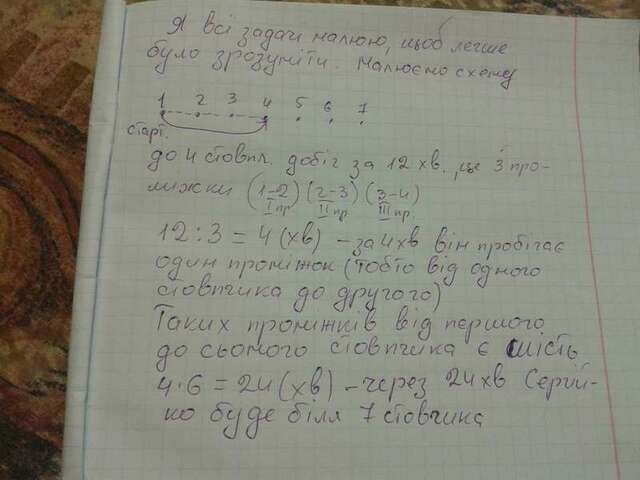 Я всі задачі малюю, щоб легше
було зрозуміти. Малюємо схему
1 2 3 4 5 6 7
старт.
до 4 стовпч. добіг за 12 хв., це 3 про-
міжки (1-2) (2-3) (3-4)
I пр. II пр. III пр.
12:3=4(хв) - за 4 хв він пробігає
один проміжок (тобто від одного
стовпчика до другого)
Таких проміжків від першого
до сьомого стовпчика є шість
4·6=24(хв) - через 24 хв Сергій-
ко буде біля 7 стовпчика